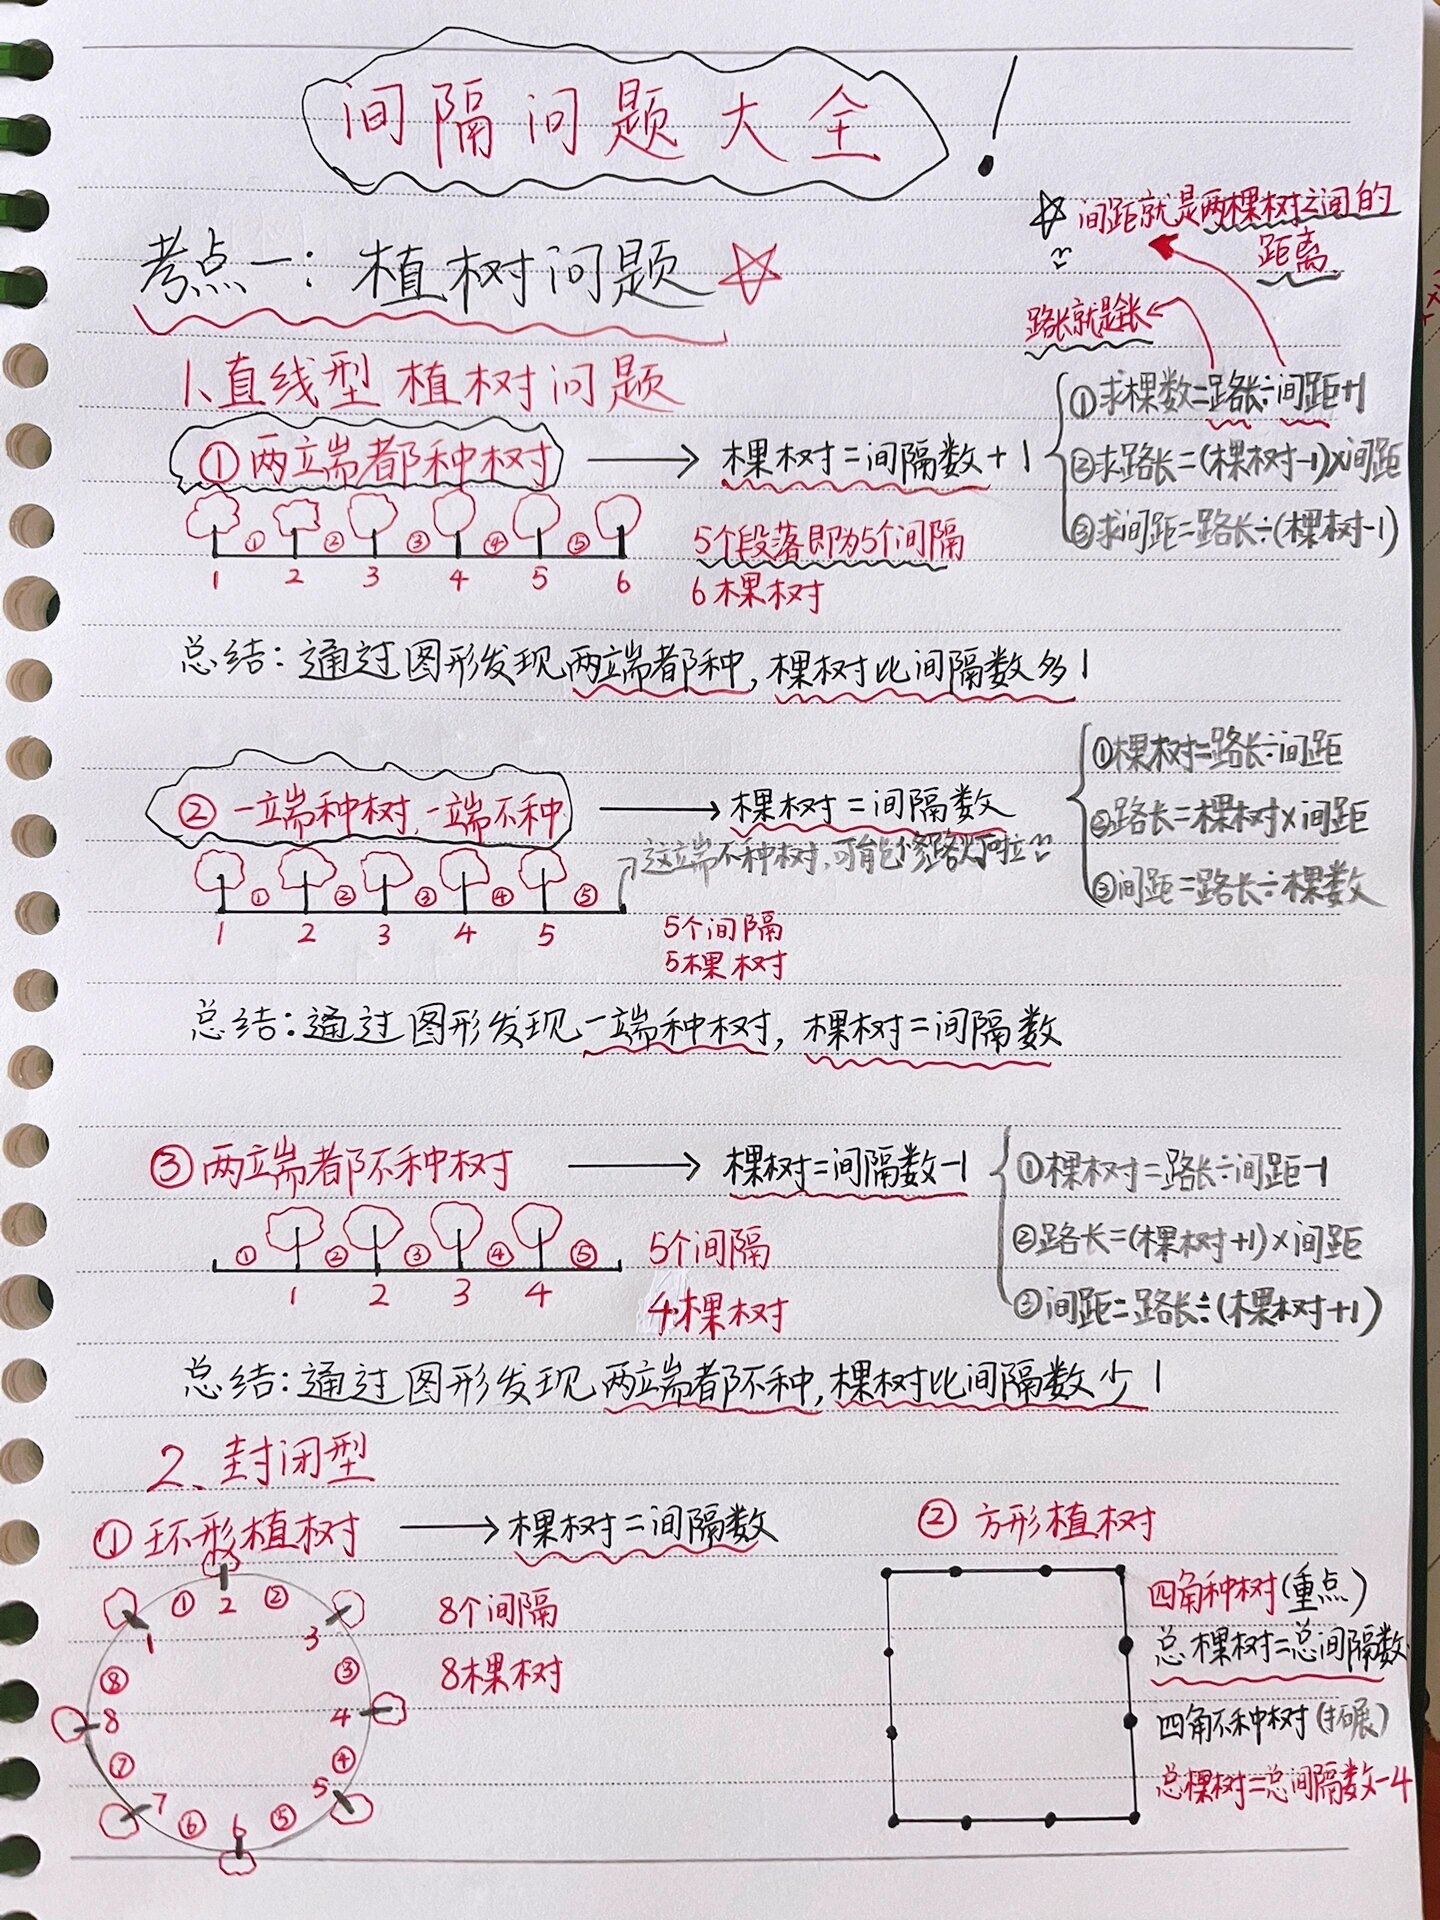 间隔问题大全!
☆ 间距就是两棵树之间的
距离
考点一：植树问题 ☆
路长就是全长
1、直线型植树问题
①两端都种树 → 棵树=间隔数+1
①求棵数=路长÷间距+1
②求路长=(棵树-1)×间距
③求间距=路长÷(棵树-1)
① ② ③ ④ ⑤
1 2 3 4 5 6
5个段落即为5个间隔
6棵树
总结：通过图形发现两端都种，棵树比间隔数多1
②一端种树，一端不种 → 棵树=间隔数
①棵树=路长÷间距
②路长=棵树×间距
③间距=路长÷棵数
这端不种树，可能修路灯啦
① ② ③ ④ ⑤
1 2 3 4 5
5个间隔
5棵树
总结：通过图形发现一端种树，棵树=间隔数
③两端都不种树 → 棵树=间隔数-1
①棵树=路长÷间距-1
②路长=(棵树+1)×间距
③间距=路长÷(棵树+1)
① ② ③ ④ ⑤
1 2 3 4
5个间隔
4棵树
总结：通过图形发现两端都不种，棵树比间隔数少1
2、封闭型
①环形植树 → 棵树=间隔数
① 2 ②
1 3
⑧ ③
8 4
⑦ ④
7 5
⑥ 6 ⑤
8个间隔
8棵树
②方形植树
四角种树(重点)
总棵树=总间隔数
四角不种树(拓展)
总棵树=总间隔数-4